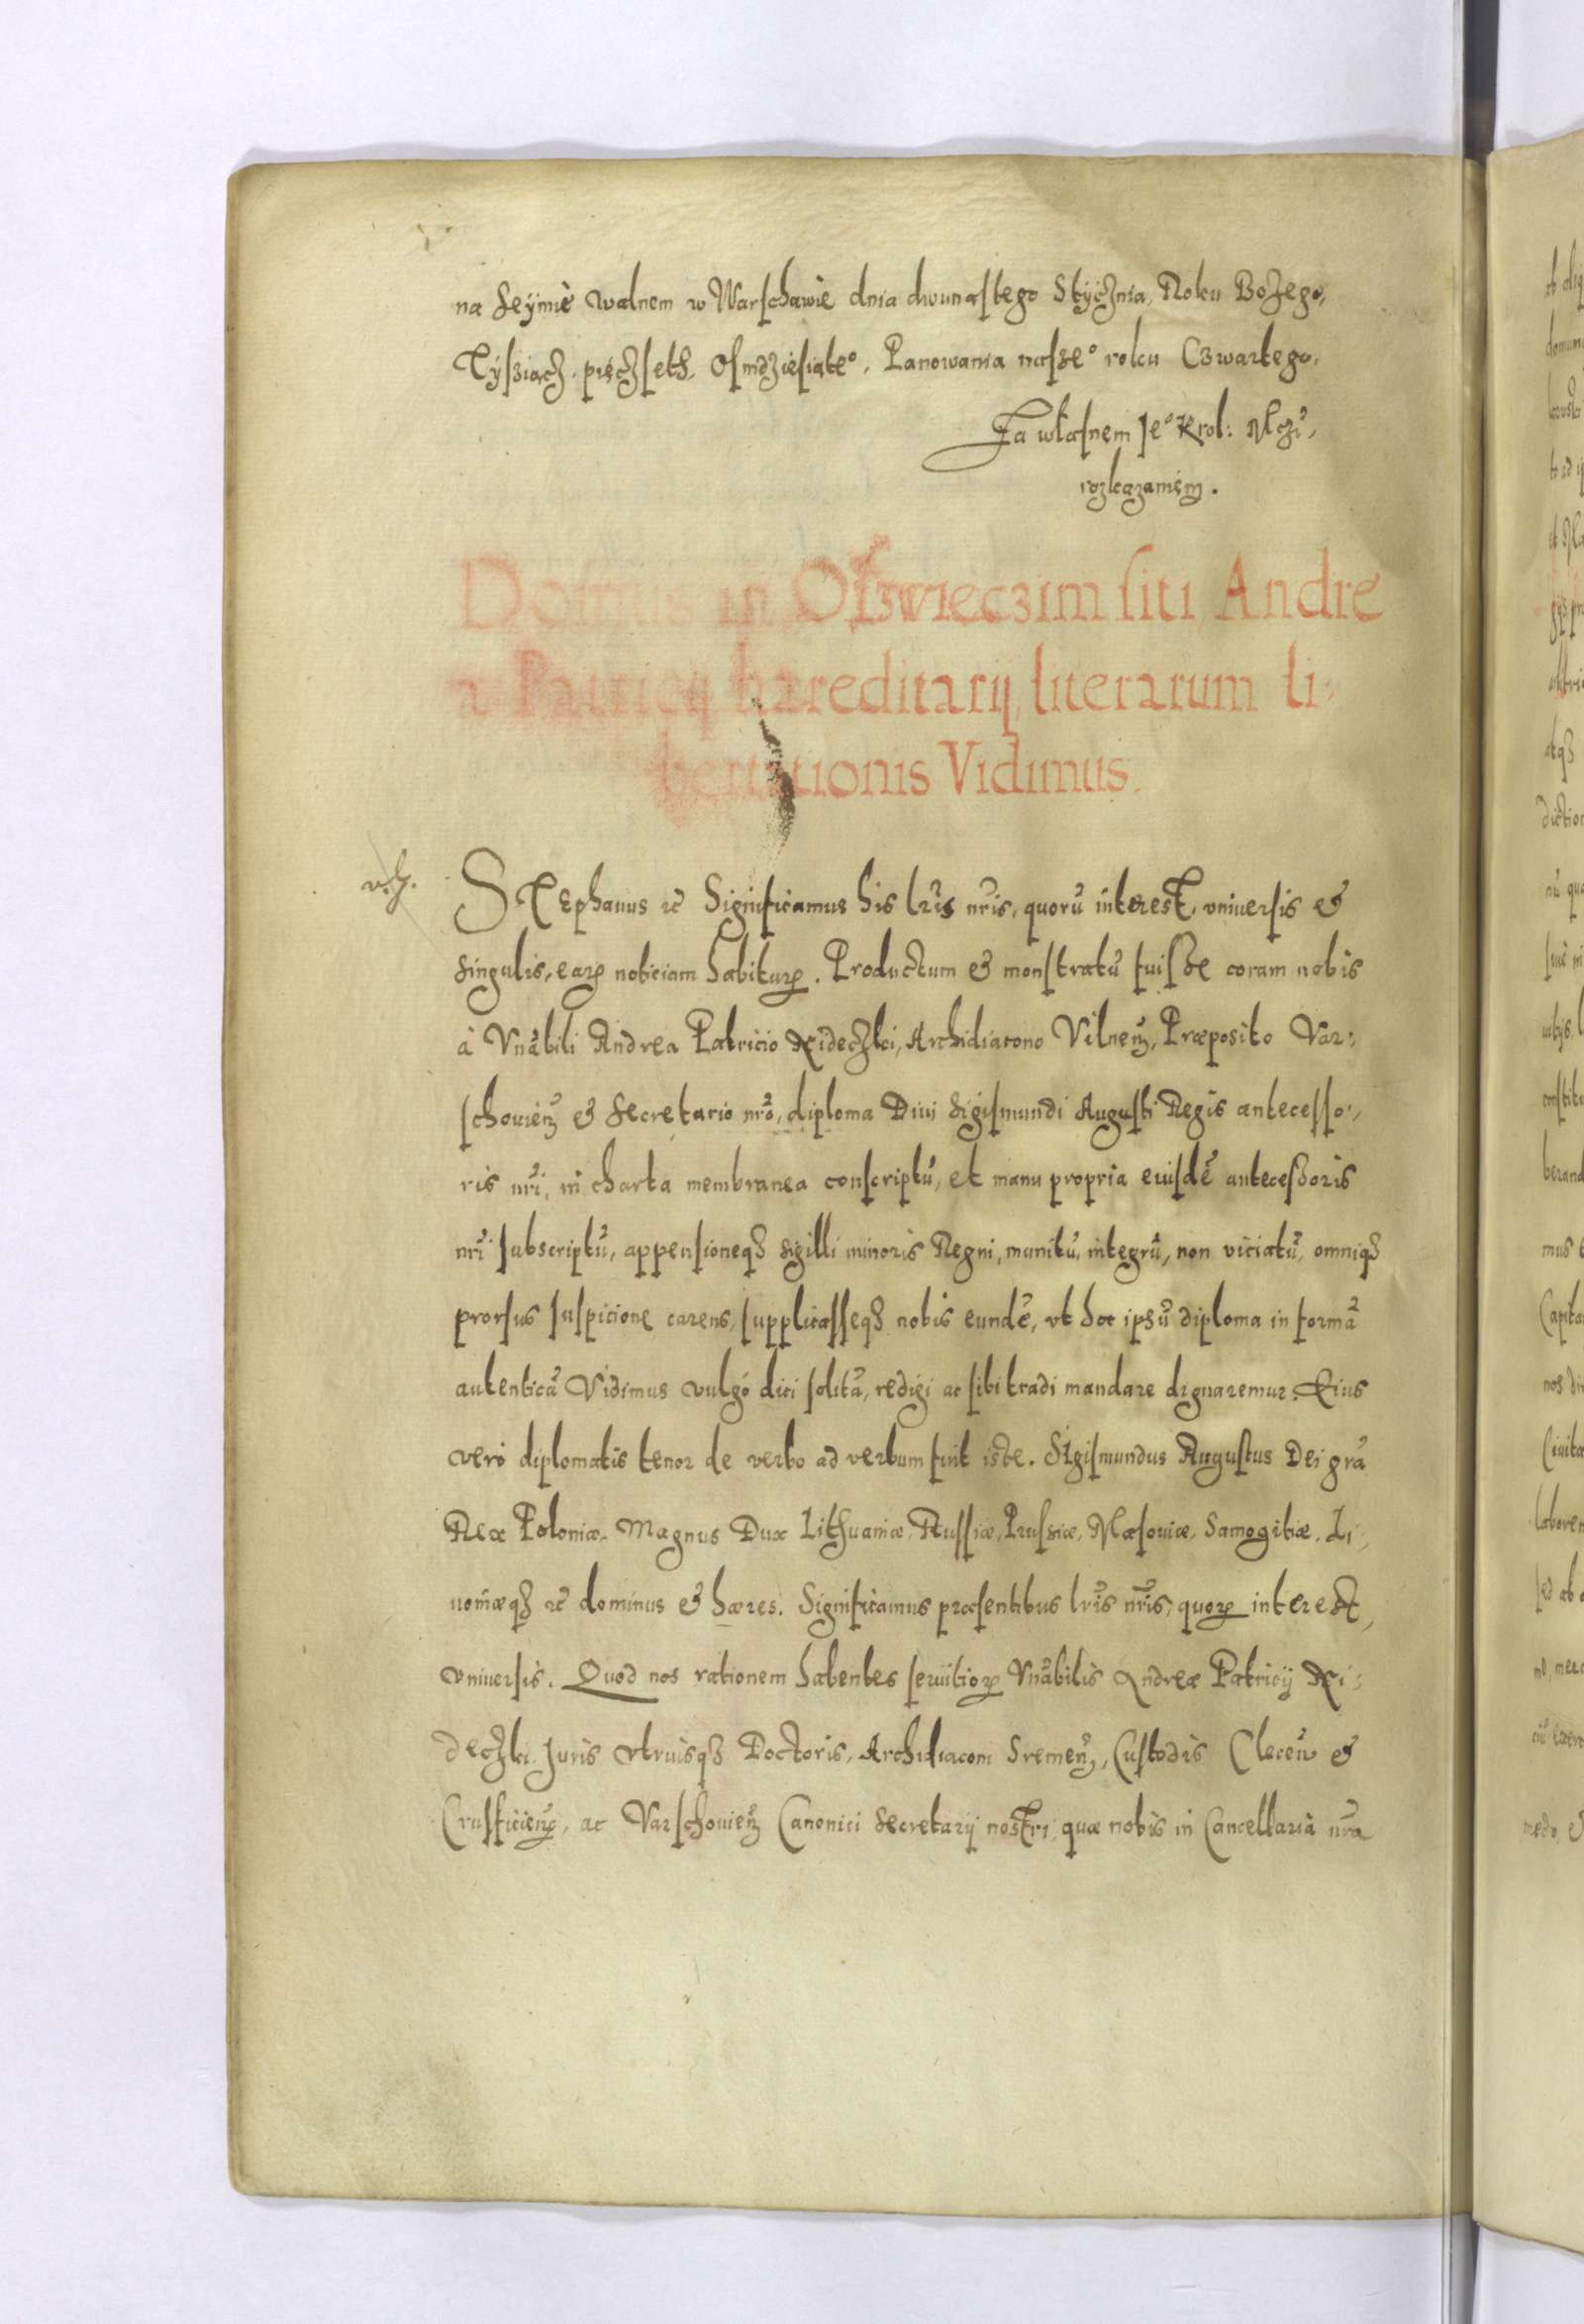 na Seymie walnem w Warschawie dnia dwunastego Stycznia, Roku Bożego,
Tysziącz, pięczseth, Osmdziesiąteº, Panowania naszeº roku Czwartego.
Za własnem Jeº Krol: Mczi,
rozkazaniem.
Domus in Oszwieczim siti Andre
a Patricij hæreditarij literarum li-
bertationis Vidimus.
STEphanus ꝛc̃ Significamus his lr̃is nr̃is, quorũ interest, vniuersis et
singulis, earꝝ noticiam habiturꝝ. Productum et monstratũ fuisse coram nobis
à Vnãbili Andrea Patricio Nideczki, Archidiacono Vilneñ, Præposito Var-
schouieñ et Secretario nr̃o, diploma Diui Sigismundi Augusti Regis antecesso-
ris nr̃i, in charta membranea conscriptũ, et manu propria eiusdẽ antecessoris
nr̃i subscriptũ, appensioneqꝫ sigilli minoris Regni, munitũ, integrũ, non viciatũ, omniqꝫ
prorsus suspicione carens, supplicasseqꝫ nobis eundẽ, vt hoc ipsũ diploma in formã
autenticã Vidimus vulgò dici solitã, redigi ac sibi tradi mandare dignaremur. Eius
verò diplomatis tenor de verbo ad verbum fuit iste. Sigismundus Augustus Dei grã
Rex Poloniæ, Magnus Dux Lithuaniæ, Russiæ, Prussiæ, Masouiæ, Samogitiæ, Li-
uoniæqꝫ ꝛc̃ dominus et hæres. Significamus præsentibus lr̃is nr̃is, quorꝝ interest,
vniuersis. Quod nos rationem habentes seruitiorꝝ Vnãbilis Andreæ Patricij Ni-
deczki Juris vtriusqꝫ Doctoris, Archidiaconi Sremeñ, Custodis Cleceñ et
Crusficieñ, ac Varschouieñ Canonici Secretarij nostri, quæ nobis in Cancellaria nr̃a